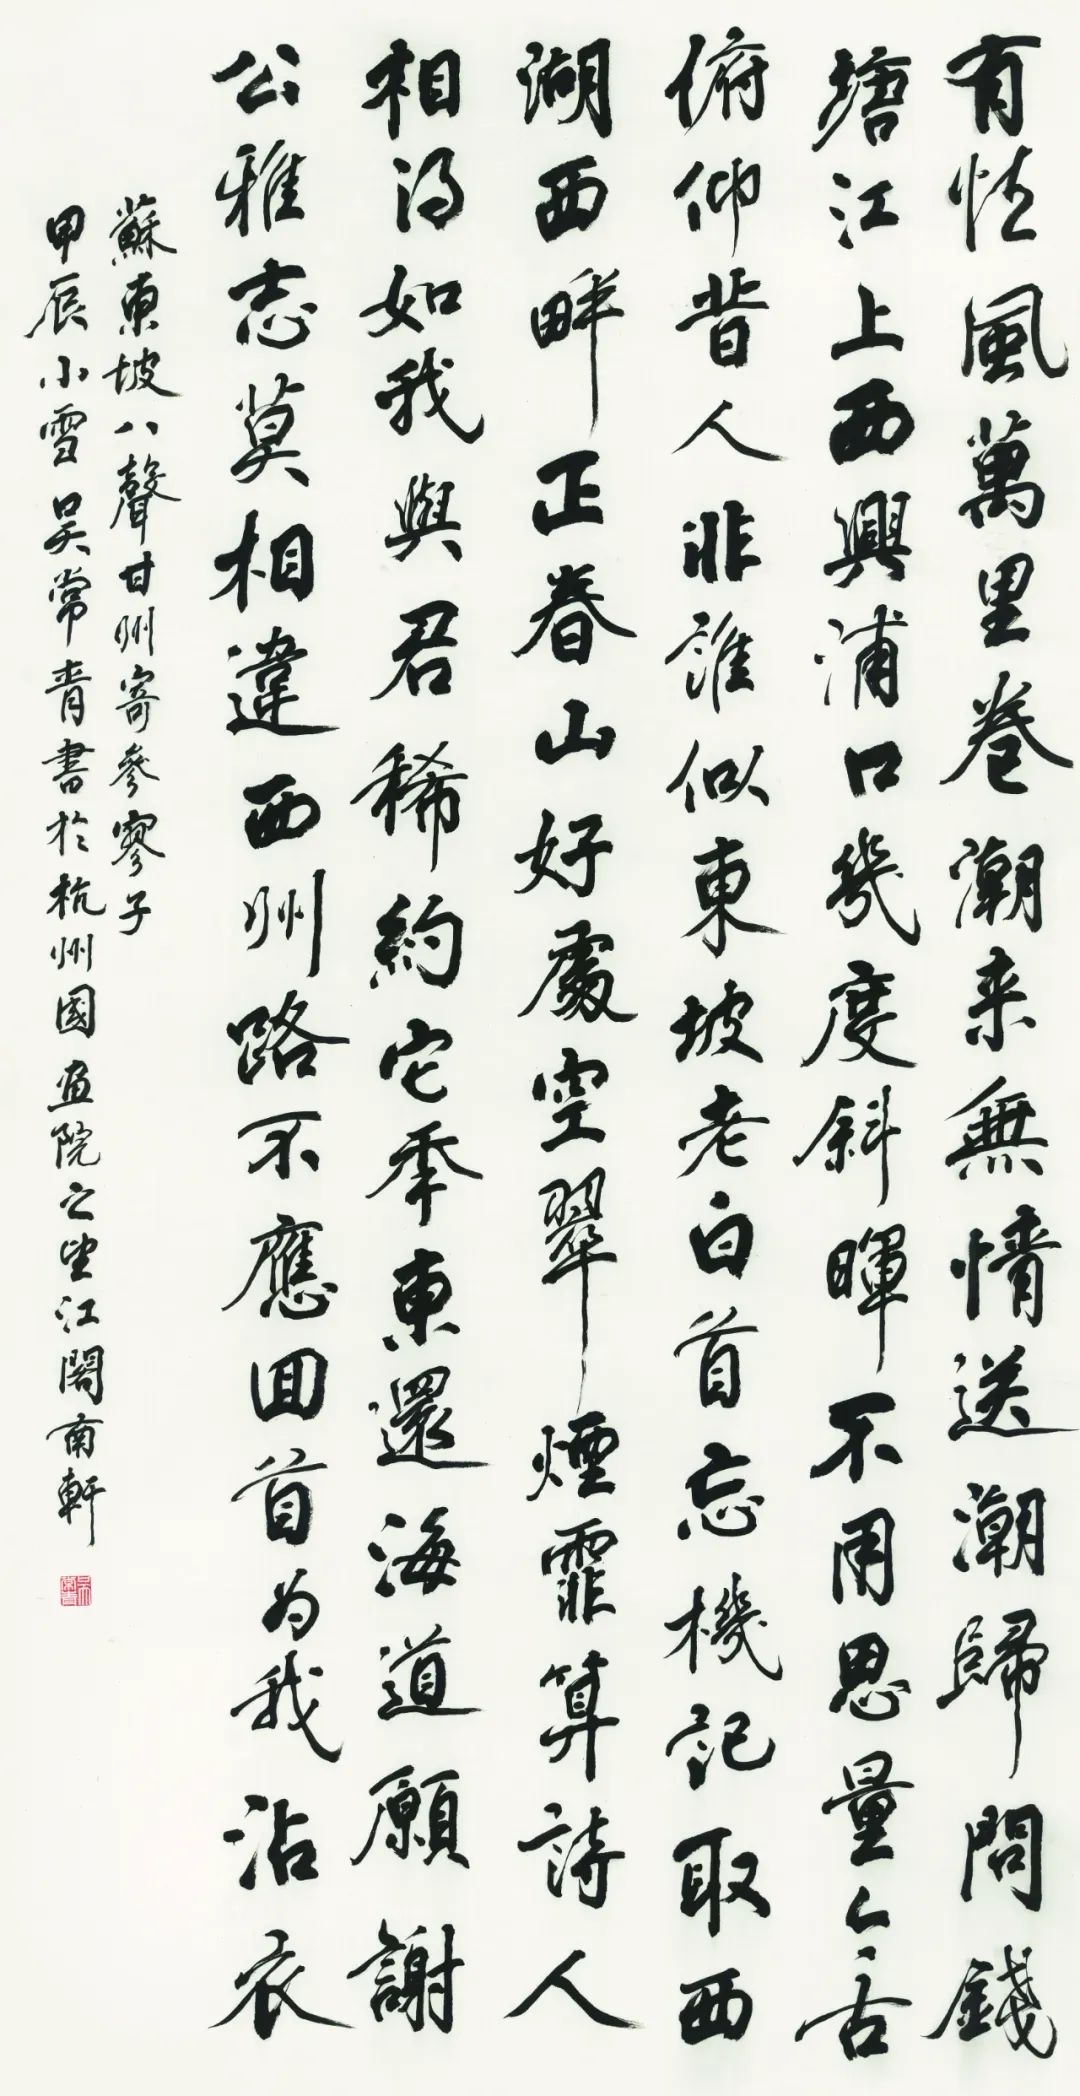 有情風萬里卷潮来無情送潮歸問錢
塘江上西興浦口幾度斜暉不用思量今古
俯仰昔人非誰似東坡老白首忘機記取西
湖西畔正春山好處空翠煙霏算詩人
相得如我與君稀約它年東還海道願謝
公雅志莫相違西州路不應回首为我沾衣
蘇東坡八聲甘州寄參寥子
甲辰小雪吴常青書於杭州國畫院之望江閣南軒